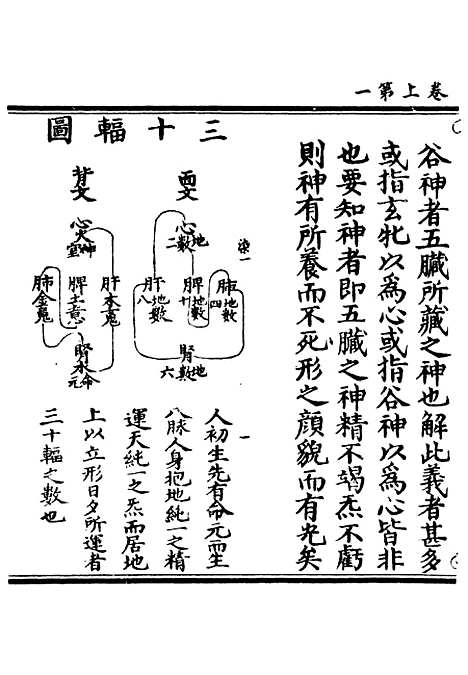 卷上第一
谷神者五臟所藏之神也解此義者甚多
或指玄牝以為心或指谷神以為心皆非
也要知神者即五臟之神精不竭炁不虧
則神有所養而不死形之顏貌而有光矣
三十輻圖
心地數二
肺地數四
脾地數十
肝地數八
腎地數六
心火神室
肝木魂
脾土意
肺金魄
腎水命元
人初生先有命元而生
八脉人身抱地純一之精
運天純一之炁而居地
上以立形日夕所運者
三十輻之數也